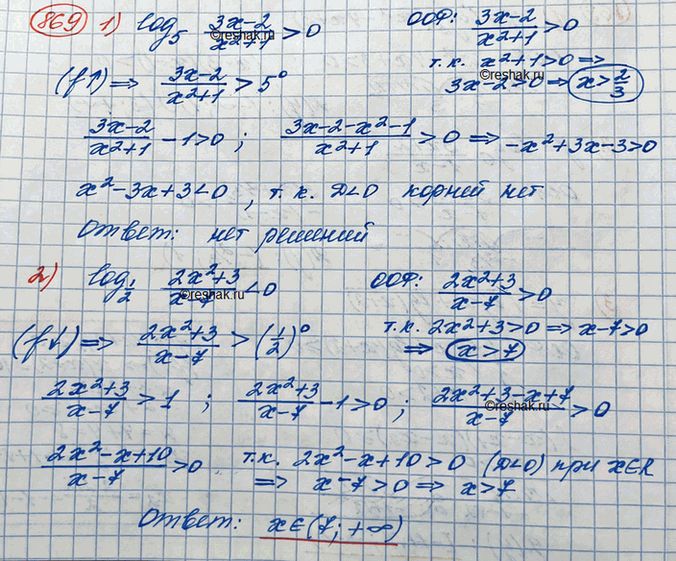 869 1) log₅ (3x-2)/(x²+1) > 0 ООФ: (3x-2)/(x²+1) > 0
т.к. x²+1>0 ⇒
(f↑) ⇒ (3x-2)/(x²+1) > 5⁰ 3x-2>0 ⇒ x>2/3
©reshak.ru
©reshak.ru
(3x-2)/(x²+1) -1>0 ; (3x-2-x²-1)/(x²+1) > 0 ⇒ -x²+3x-3>0
x²-3x+3<0 , т.к. D<0 корней нет
Ответ: нет решений
2) log_{1/2} (2x²+3)/(x-7) <0 ООФ: (2x²+3)/(x-7) >0
©reshak.ru
(f↓) ⇒ (2x²+3)/(x-7) > (1/2)⁰ т.к. 2x²+3>0 ⇒ x-7>0
⇒ x>7
(2x²+3)/(x-7) > 1 ; (2x²+3)/(x-7) -1>0 ; (2x²+3-x+7)/(x-7) >0
©reshak.ru
(2x²-x+10)/(x-7) >0 т.к. 2x²-x+10>0 (D<0) при x∈R
⇒ x-7>0 ⇒ x>7
Ответ: x∈(7; +∞)